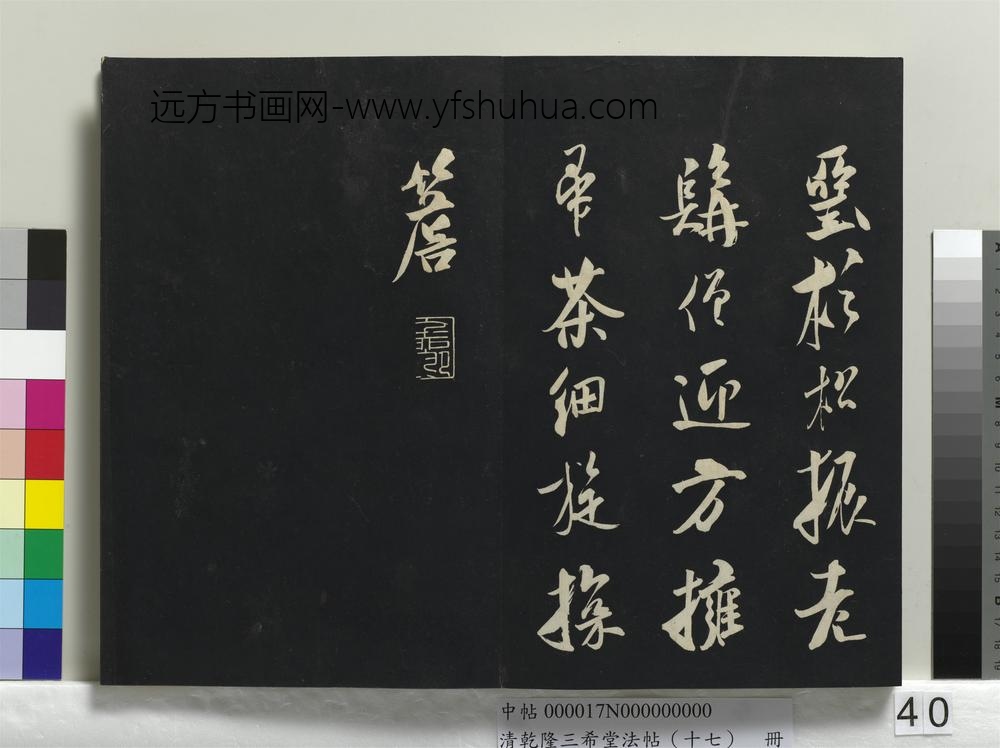 远方书画网-www.yfshuhua.com
堊杉松振老
髯僧迎方擁
帚茶細旋探
簷
中帖 000017N000000000
清乾隆三希堂法帖（十七） 冊
40